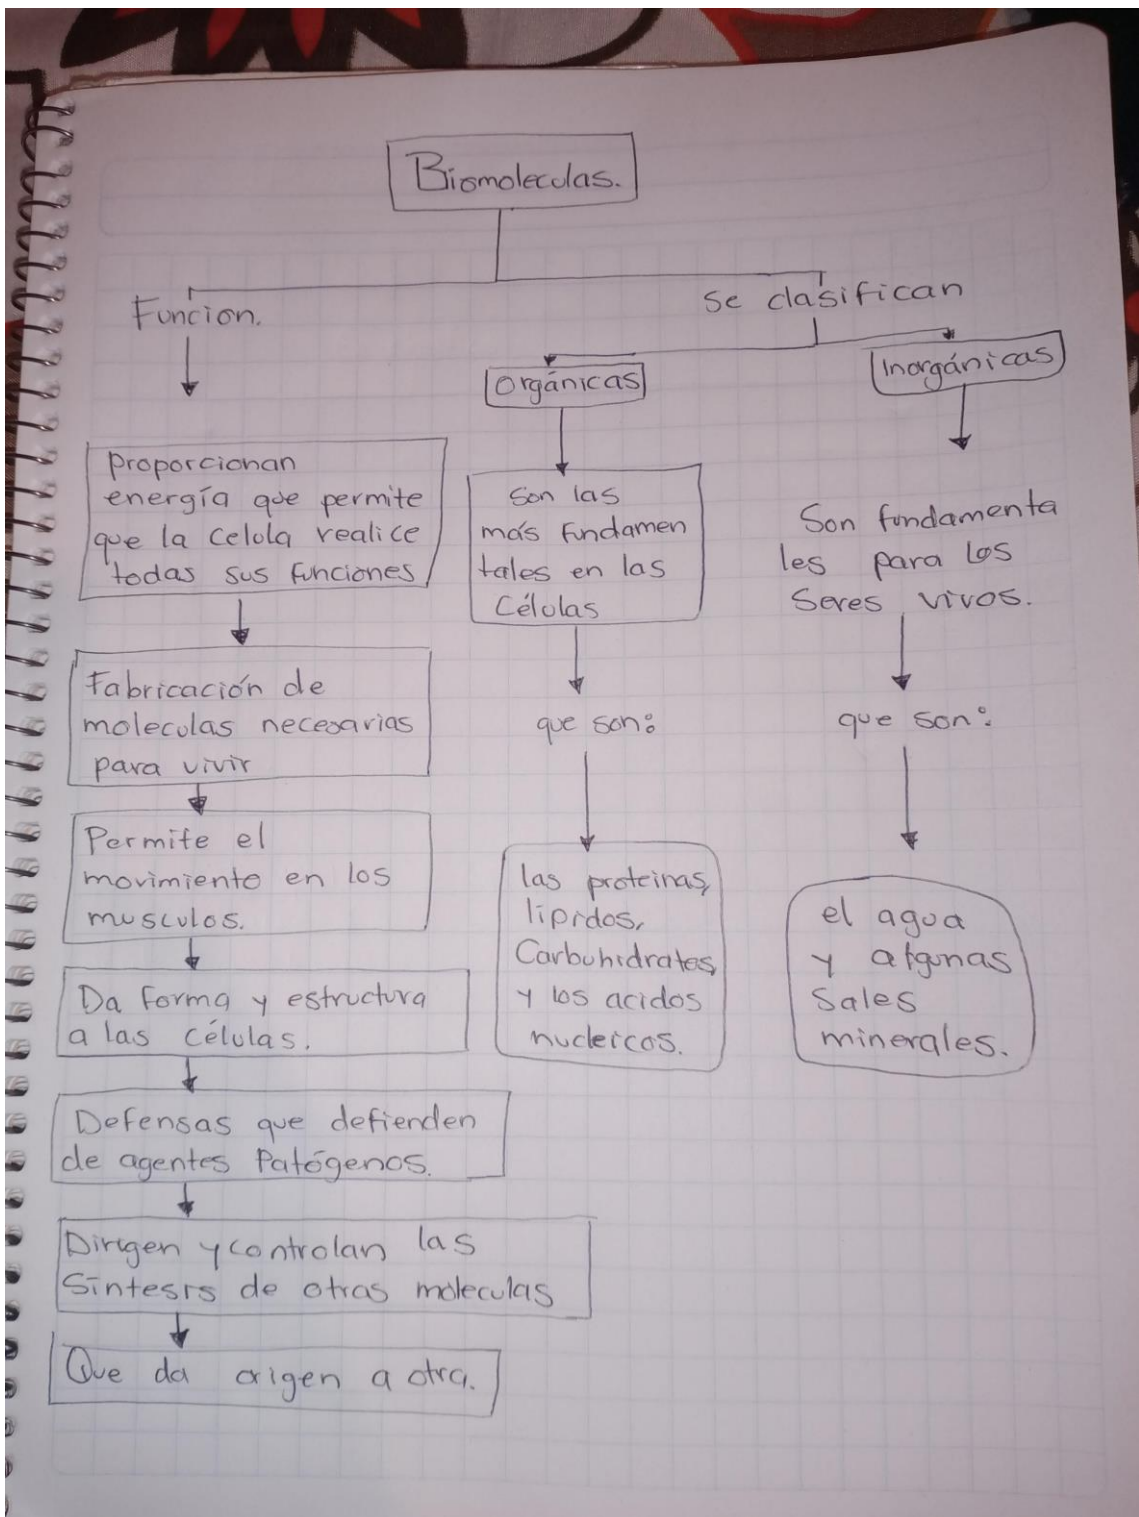 Biomoleculas.
Funcion.
se clasifican
Orgánicas
Inorgánicas
proporcionan
energía que permite
que la celula realice
todas sus funciones
Fabricación de
moleculas necesarias
para vivir
Permite el
movimiento en los
musculos.
Da forma y estructura
a las células.
Defensas que defienden
de agentes Patógenos.
Dirigen y controlan las
Síntesis de otras moleculas
Que da origen a otra.
Son las
más fundamen
tales en las
Células
que son:
las proteinas,
lípidos,
Carbohidratos,
y los acidos
nucleicos.
Son fundamenta
les para los
Seres vivos.
que son:
el agua
y algunas
Sales
minerales.